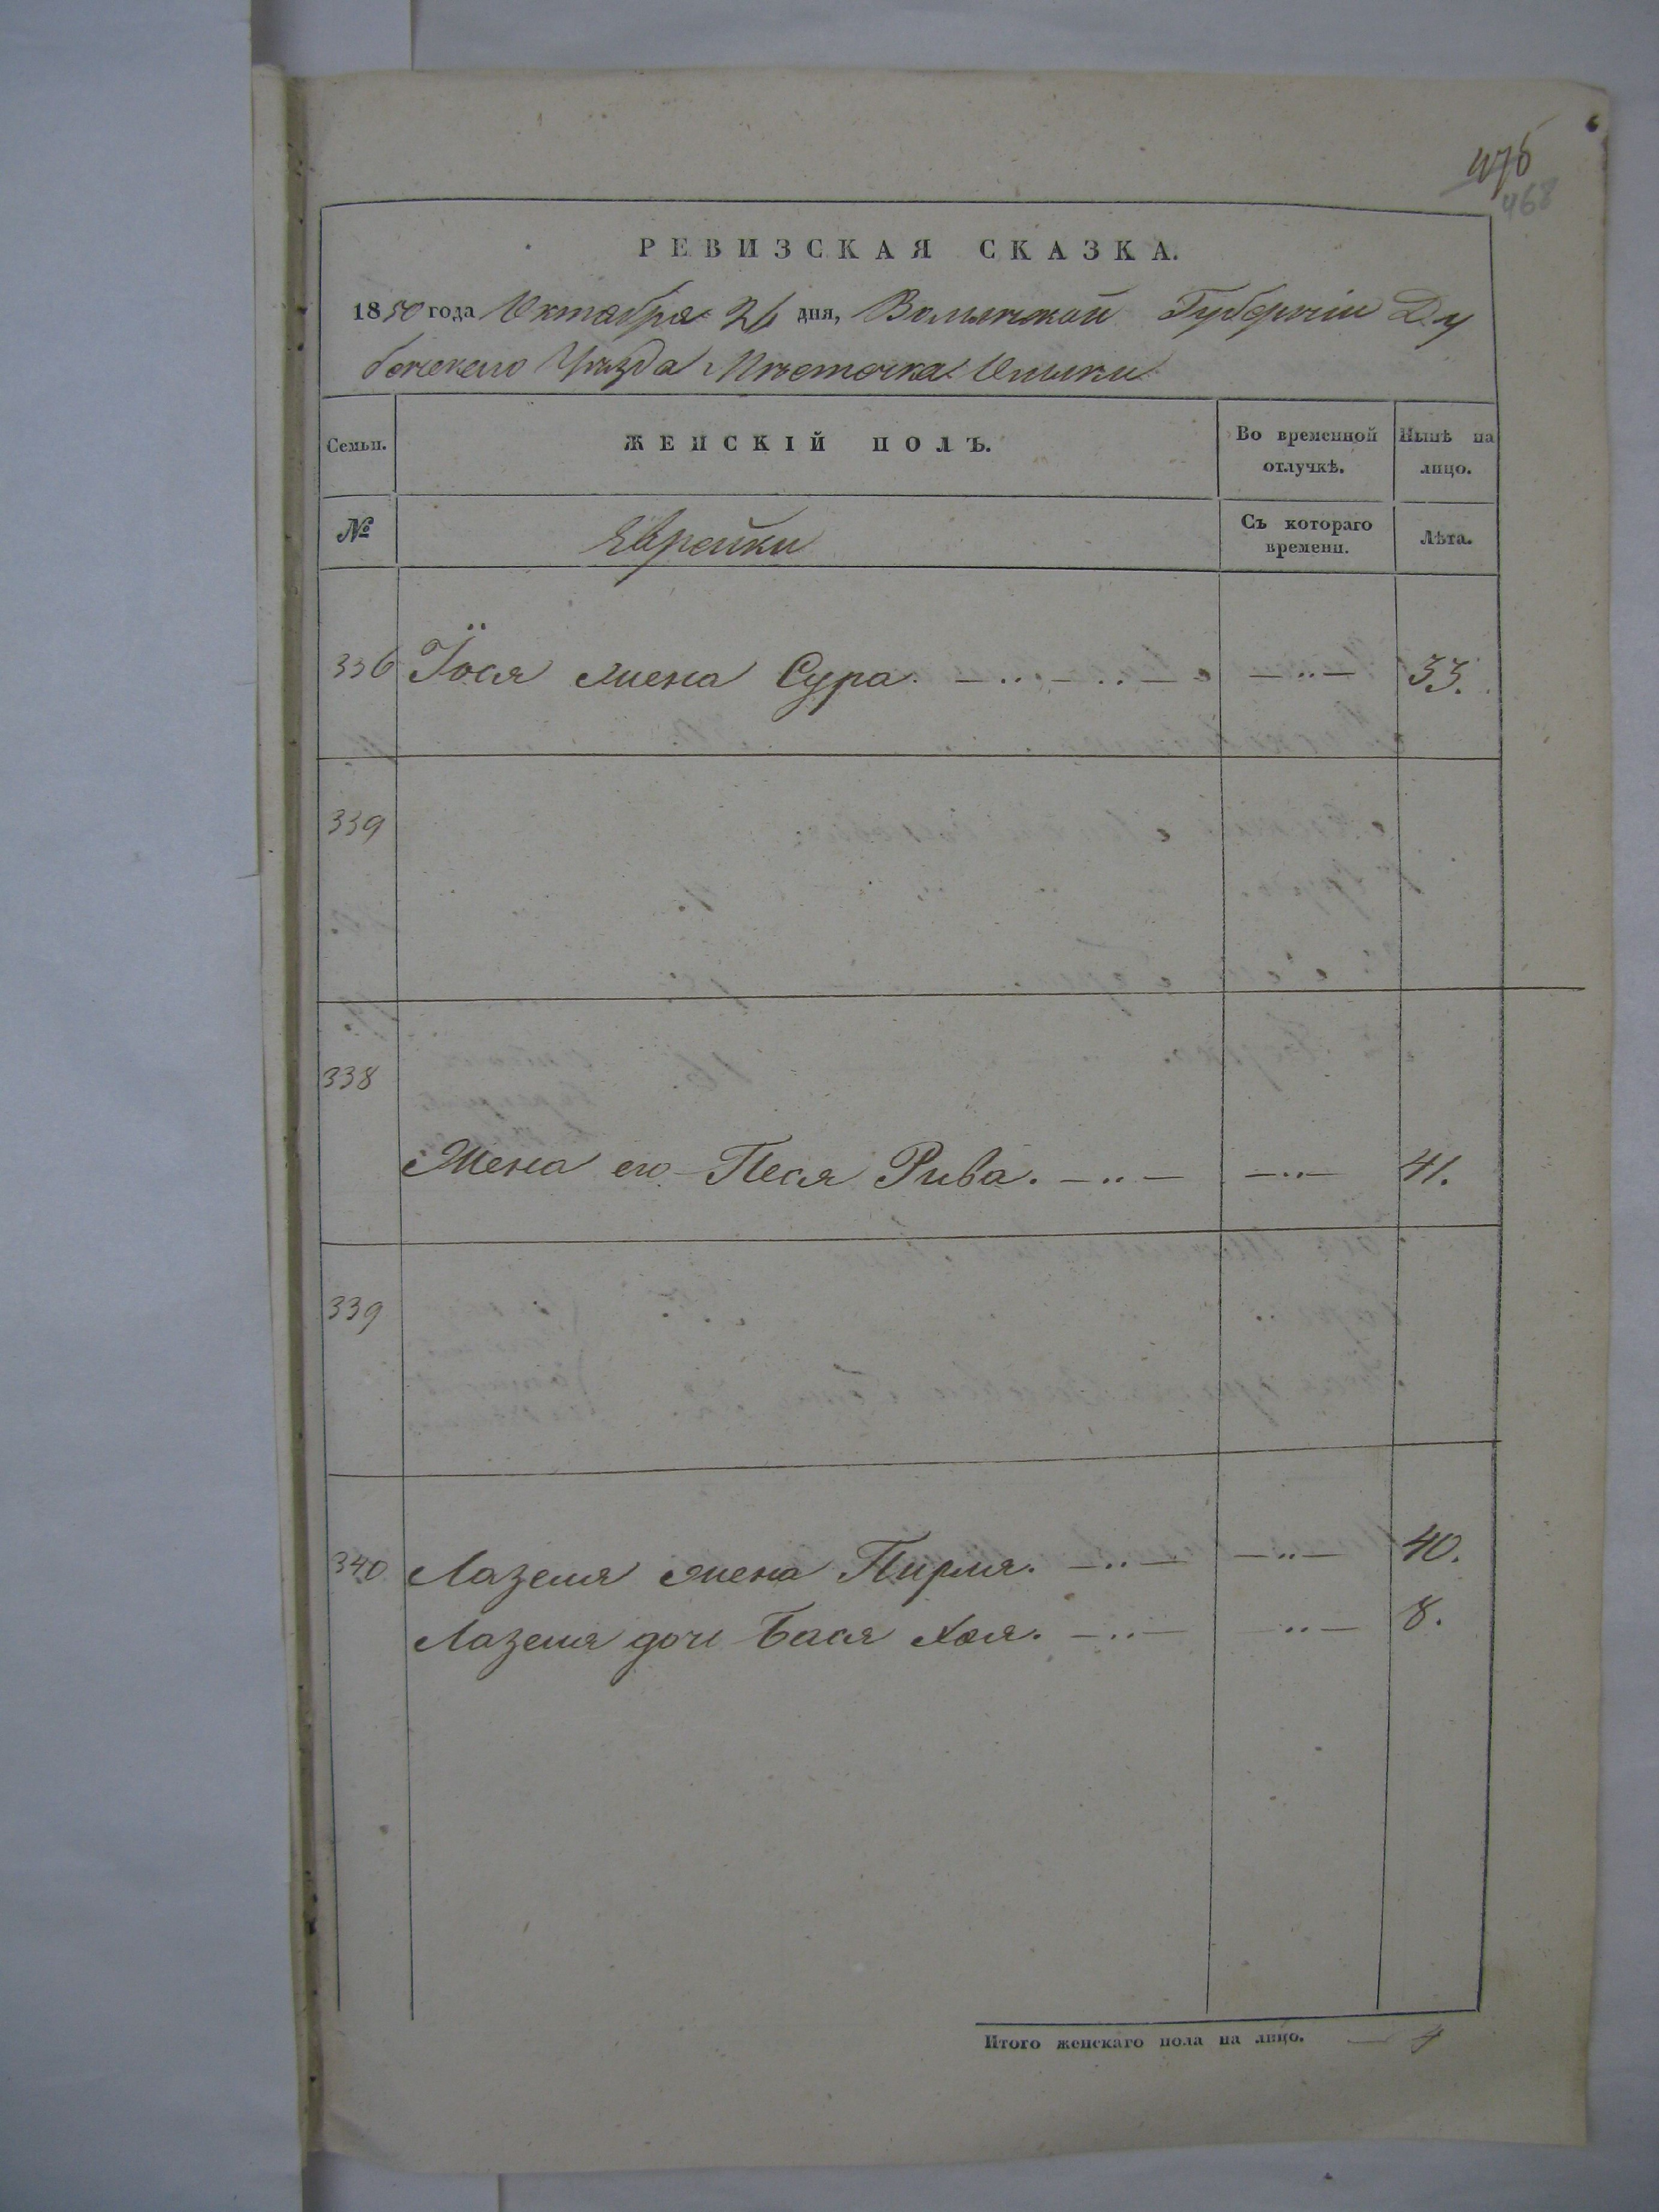 475
468
РЕВИЗСКАЯ СКАЗКА.
1850 года Октября 26 дня, Волынской Губерніи Ду
бенскаго Уѣзда Мѣстечка Олыки
Семьи. ЖЕНСКІЙ ПОЛЪ. Во временной отлучкѣ. Нынѣ на лицо.
№ Еврейки Съ котораго времени. Лѣта.
336 Іося жена Сура. — .. — .. — — .. — 33.
339
338
Жена его Песя Рива. — .. — — .. — 41.
339
340 Лазеля жена Пирля. — .. — — .. — 40.
Лазеля дочь Бася Хая. — .. — .. — 8.
Итого женскаго пола на лицо. — 4